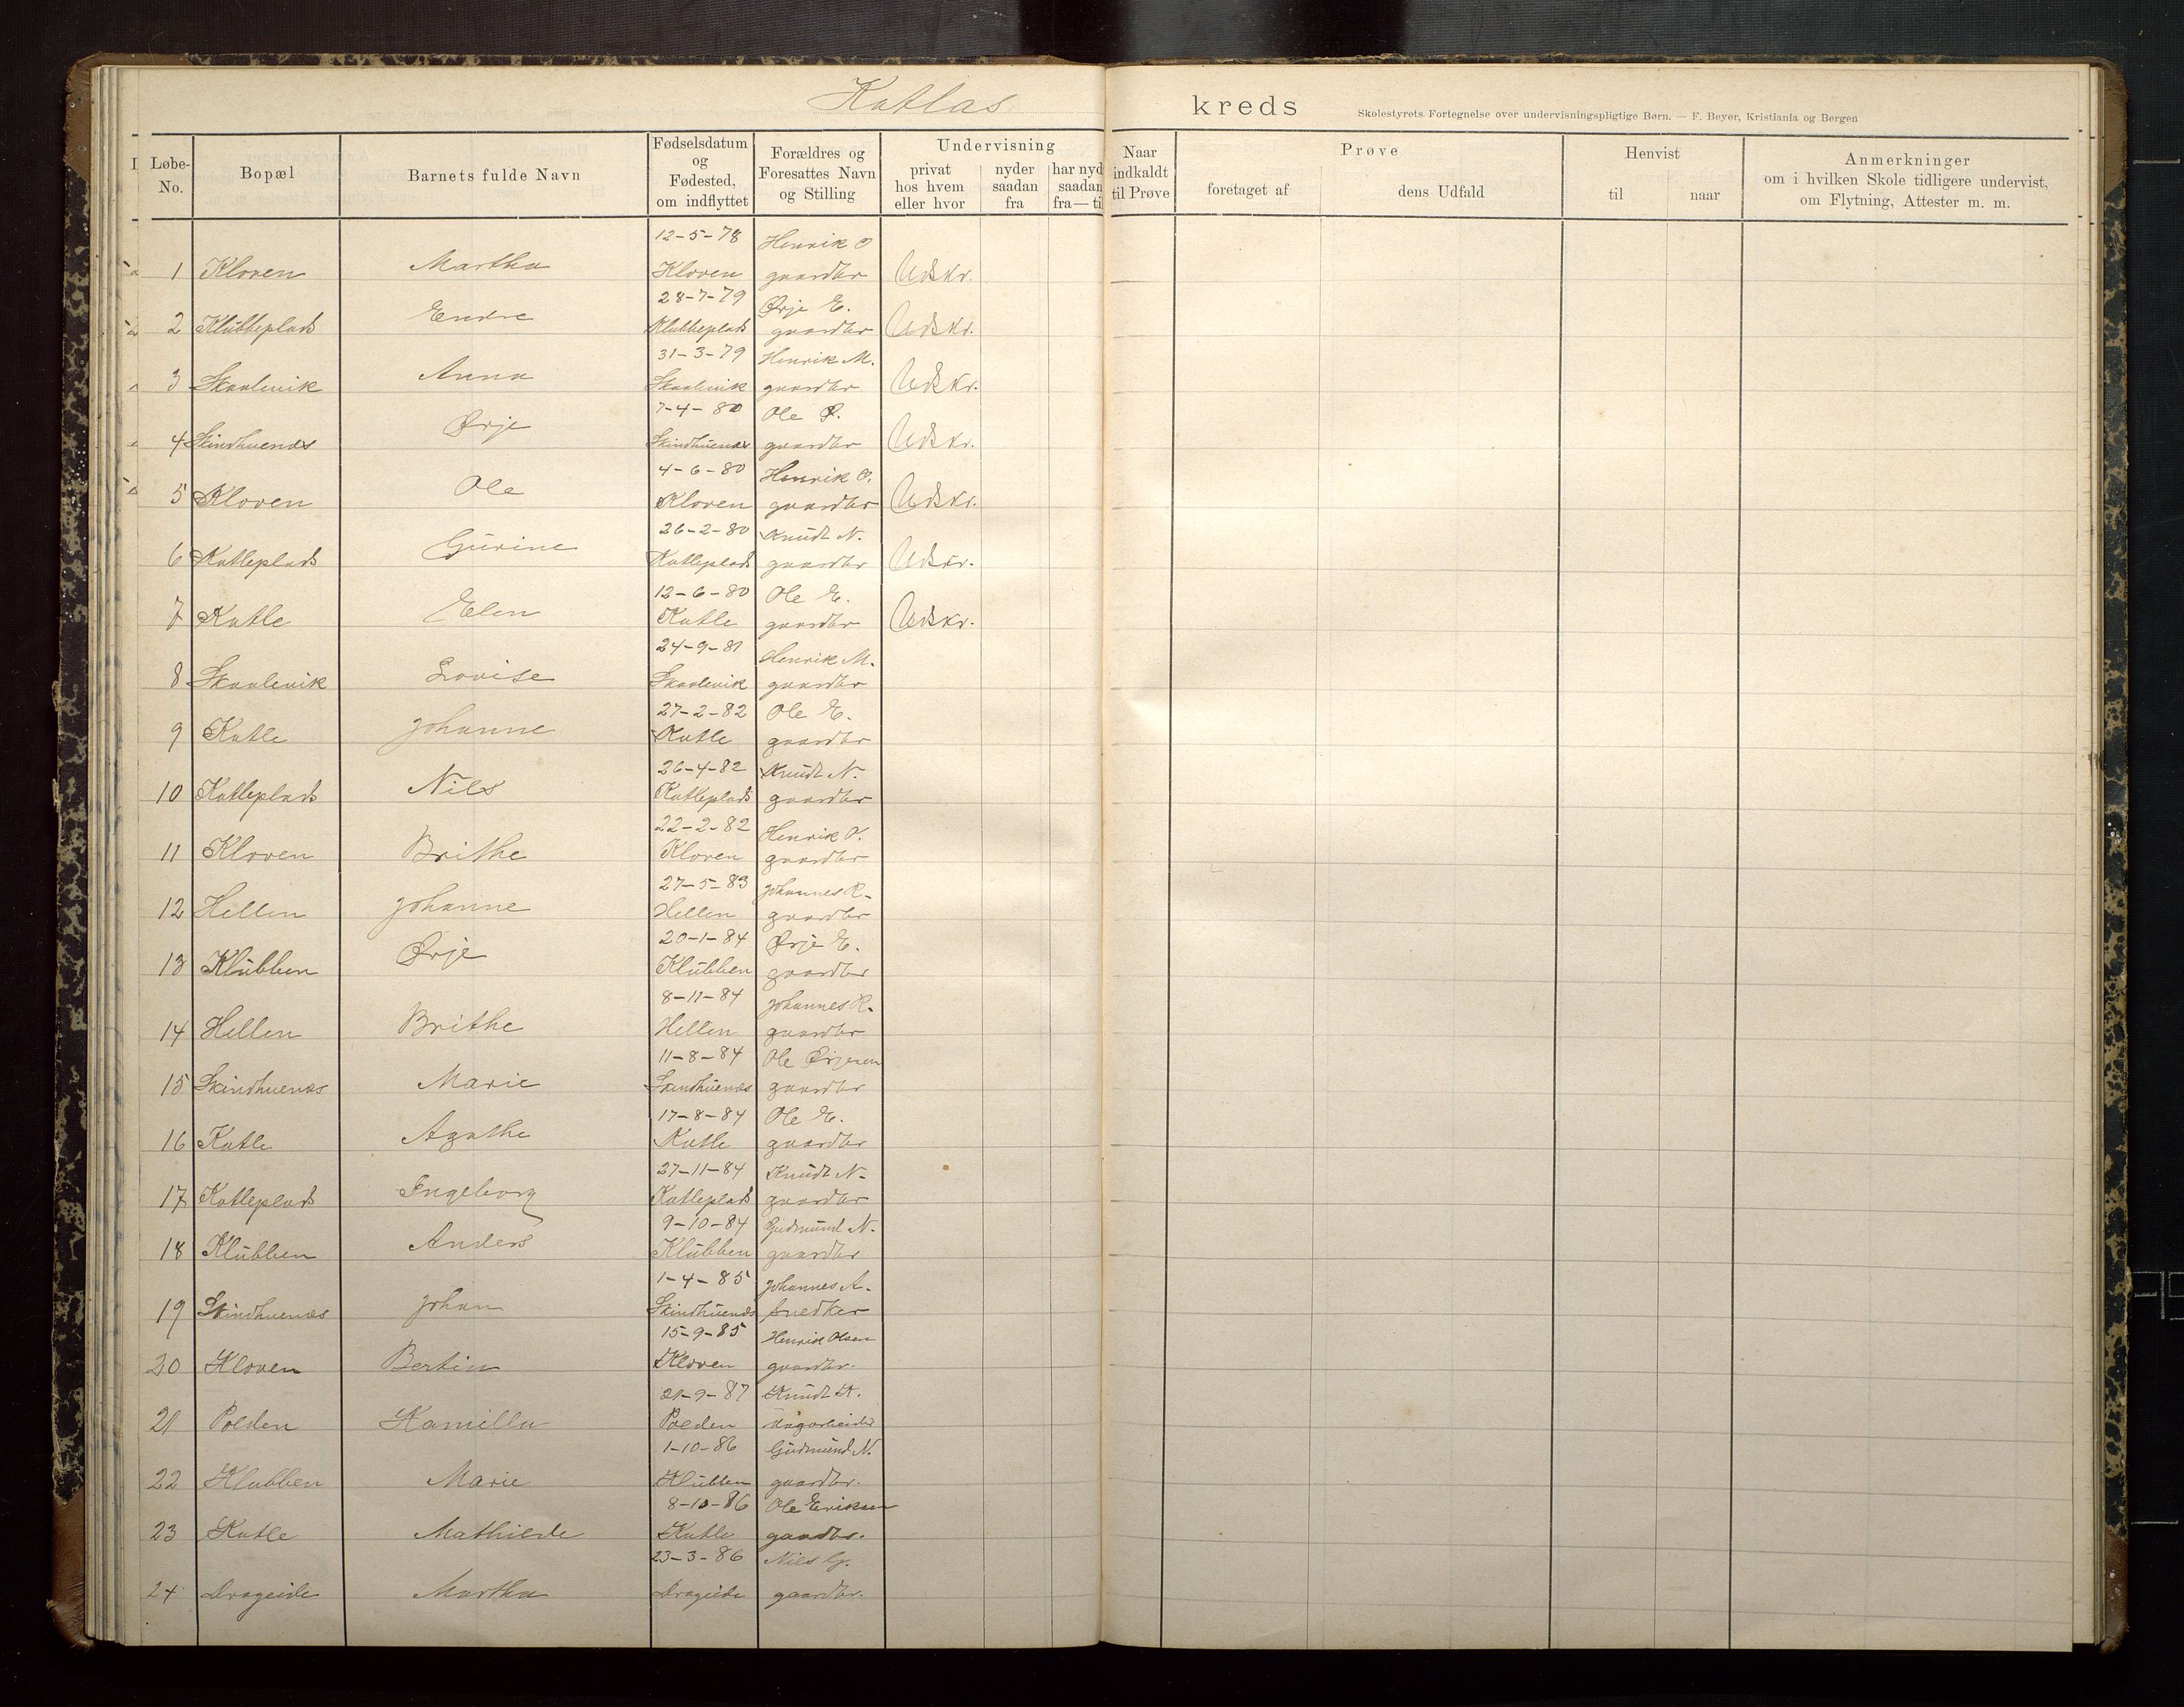 Katlas kreds Skolestyrets Fortegnelse over undervisningspligtige Børn. — F. Beyer, Kristiania og Bergen
Løbe-No. Bopæl Barnets fulde Navn Fødselsdatum og Fødested, om indflyttet Forældres og Foresattes Navn og Stilling Undervisning privat hos hvem eller hvor nyder saadan fra har nyd saadan fra— ti Naar indkaldt til Prøve Prøve foretaget af dens Udfald Henvist til naar Anmerkninger om i hvilken Skole tidligere undervist, om Flytning, Attester m. m.
12-5-78 Henrik O
1 Kloven Martha Kloven gaardbr Udskr.
28-7-79 Ørje E.
2 Klubbeplads Endre Klubbeplads gaardbr Udskr.
31-3-79 Henrik M.
3 Skaalevik Anna Skaalevik gaardbr Udskr.
7-4-80 Ole Ø.
4 Skindhuenæs Ørje Skindhuenæs gaardbr Udskr.
4-6-80 Henrik O.
5 Kloven Ole Kloven gaardbr Udskr.
26-2-80 Knudt N.
6 Katleplads Gurine Katleplads gaardbr Udskr.
12-6-80 Ole E.
7 Katle Elen Katle gaardbr Udskr.
24-9-81 Henrik M.
8 Skaalevik Lovise Skaalevik gaardbr
27-2-82 Ole E.
9 Katle Johanne Katle gaardbr
26-4-82 Knudt N.
10 Katleplads Nils Katleplads gaardbr
22-2-82 Henrik O.
11 Kloven Brithe Kloven gaardbr
27-5-83 Johannes R.
12 Hellen Johanne Hellen gaardbr
20-1-84 Ørje E.
13 Klubben Ørje Klubben gaardbr
8-11-84 Johannes R.
14 Hellen Brithe Hellen gaardbr
11-8-84 Ole Ørjesen
15 Skindhuenæs Marie Skindhuenæs gaardbr
17-8-84 Ole E.
16 Katle Agathe Katle gaardbr
27-11-84 Knudt N.
17 Katleplads Ingeborg Katleplads gaardbr
9-10-84 Gudmund N.
18 Klubben Anders Klubben gaardbr
1-4-85 Johannes A.
19 Skindhuenæs Johan Skindhuenæs snedker
15-9-85 Henrik Olsen
20 Kloven Bertin Kloven gaardbr.
21-9-87 Knudt K.
21 Polden Kamilla Polden dagarbeider
1-10-86 Gudmund N.
22 Klubben Marie Klubben gaardbr.
8-10-86 Ole Eriksen
23 Katle Mathilde Katle gaardbr.
23-3-86 Nils G.
24 Drageide Martha Drageide gaardbr.